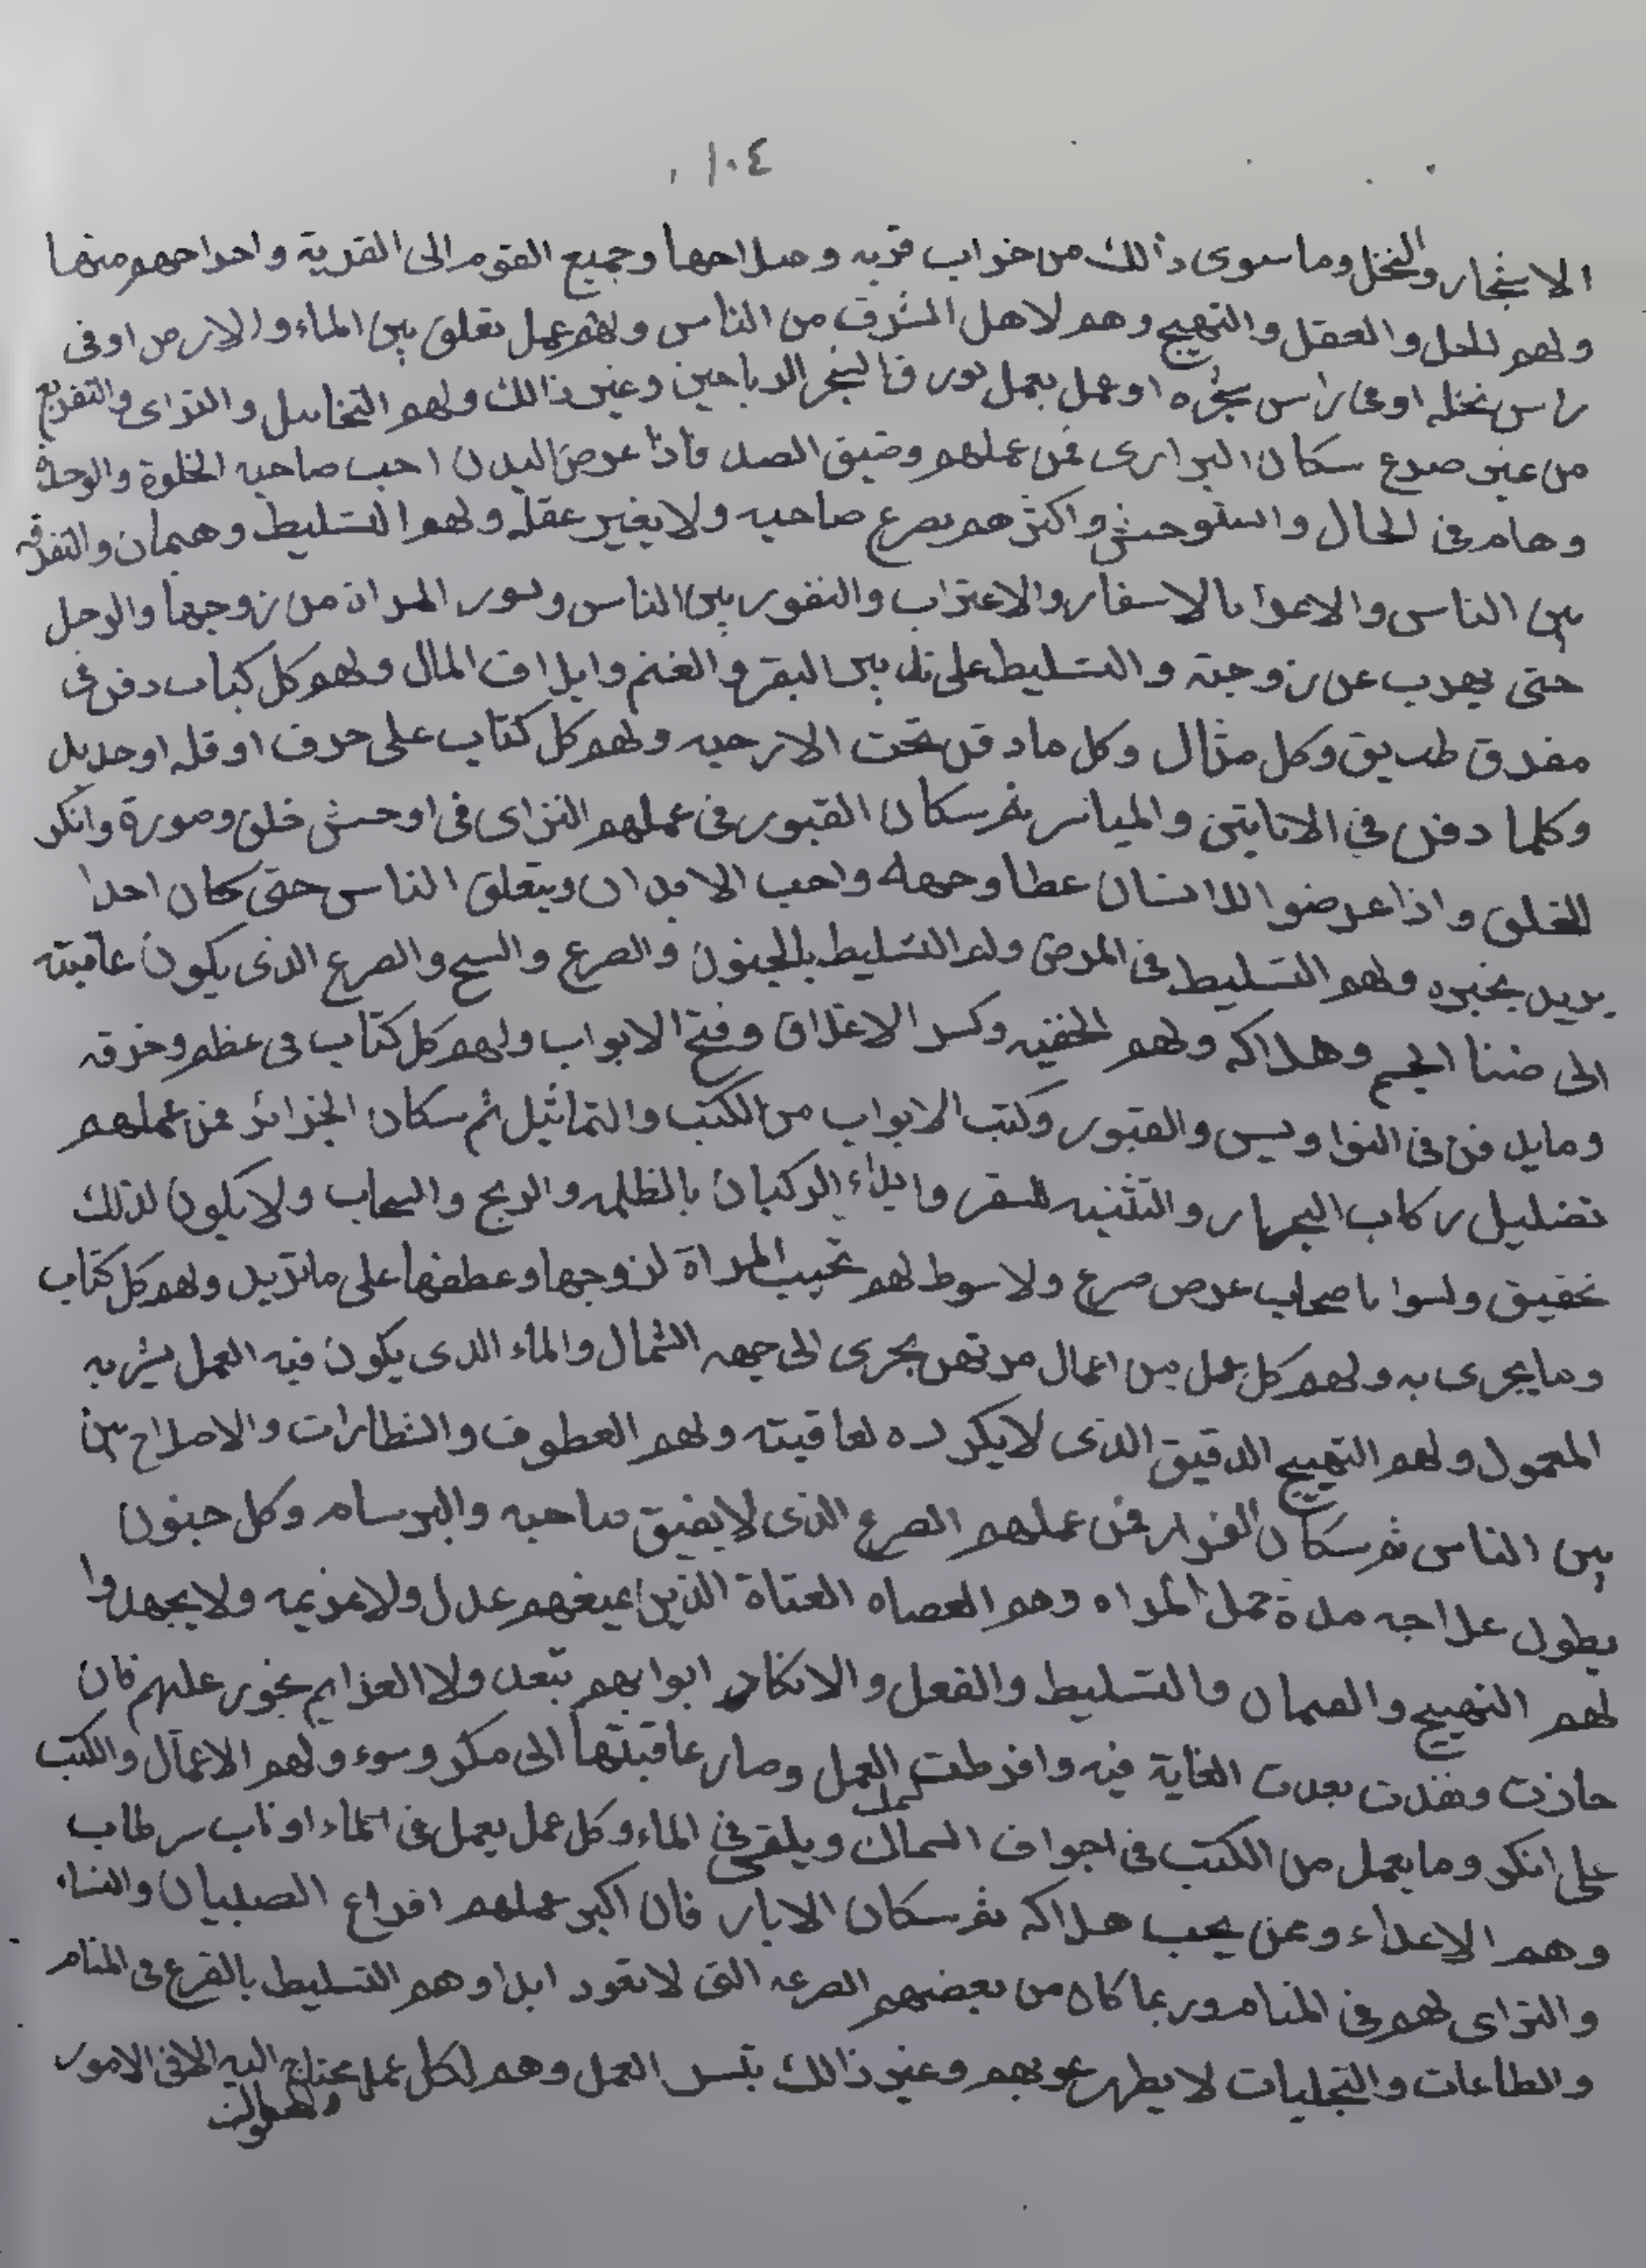 ١٠٤
الاشجار والنخل وما سوى ذالك من خراب قريه وصلاحها وجميع القوم الى القرية واخراجهم منها
ولهم للحل والعقل والتهييج وهم لاهل الشرف من الناس ولهم عمل تعلق بين الماء والارض او فى
راس نخله او على راس شجره او عمل بعمل الرياحين وغير ذالك ولهم التخاييل والتراى والتفزيع
من غير صرع سكان البرارى فمن عملهم وضيق الصدر فاذا عرض البدن احب صاحبه الخلوة والوحدة
وهام فى الحال واستوحش واكثرهم يصرع صاحبه ولا يغير عقله ولهم التسليط وهيمان والتفرقه
بين الناس والاغوا بالاسفار والاغتراب والنفور بين الناس ونفور المراة من زوجها والرجل
حتى يهرب عن زوجته والتسليط على البقر والغنم واتلاف المال ولهم كل كتاب دفن فى
مفرق طريق وكل مثال وكل ما دفن تحت الارحيه ولهم كل كتاب على خزف او قله او حديد
وكلما دفن في الاتاتين والمياسر ثم سكان القبور فى عملهم التراى فى اوحش خلق وصورة وانكر
الخلق واذا عرضوا للانسان غطا وجهه واحب الابدان ويتعلق الناس حتى كان احدا
يريد يخبره ولهم التسليط فى المرضى ولهم التسليط بالجنون والصرع والسح والصرع الذى يكون عاقبته
الى ضنا الجسم وهلاكه ولهم الخفيه وكسر الاغلاق وفتح الابواب ولهم كل كتاب فى عظم وخرقه
وما يدفن فى النواويس والقبور وكتب الابواب من الكتب والتماثيل ثم سكان الجزائر فمن عملهم
تضليل ركاب البحار والتثنيه للسفر وابلاء الركبان بالظلمه والريح والسحاب ولا يكون لذلك
تحقيق وليسوا باصحاب عرض صرع ولا سوط لهم تحبيب المراة لزوجها وعطفها على ما تريد ولهم كل كتاب
وما يجرى به ولهم كل عمل من اعمال من نهر يجرى الى جهه الشمال والماء الذى يكون فيه العمل يشربه
المعمول ولهم التهييج الدقيق الذى لا يكره لعاقبته ولهم العطوف والنظارات والاصلاح بين
بين الناس ثم سكان فمن عملهم الصرع الذى لا يفيق صاحبه والبرسام وكل جنون
يطول علاجه مدة حمل المراه وهم العصاه العتاة الذين عدل ولا عزيمه ولا يجهدوا
لهم التهييج والهيمان والتسليط والفعل والانكاد ابوابهم بتعد ولا العزايم تجوز عليهم فان
جازت ونفذت بعدت الغاية فيه وافرطت العمل وصار عاقبتها الى مكر وسوء ولهم الاعمال والكتب
على انكر وما يعمل من الكتب فى اجواف السماك ويلقى فى الماء وكل عمل يعمل فى الماء
وهم الاعداء وممن يحب هلاكه ثم سكان الابار فان اكبر عملهم افزاع الصبيان والنساء
والتراى لهم فى المنام وربما كان من بعضهم الصرعه التى لا تعود ابدا وهم التسليط بالفزع فى المنام
والطاعات والتجليات لا يظهر عيوبهم وغير ذالك بتسر العمل وهم لكل عمل يحتاج اليه الا فى الامور